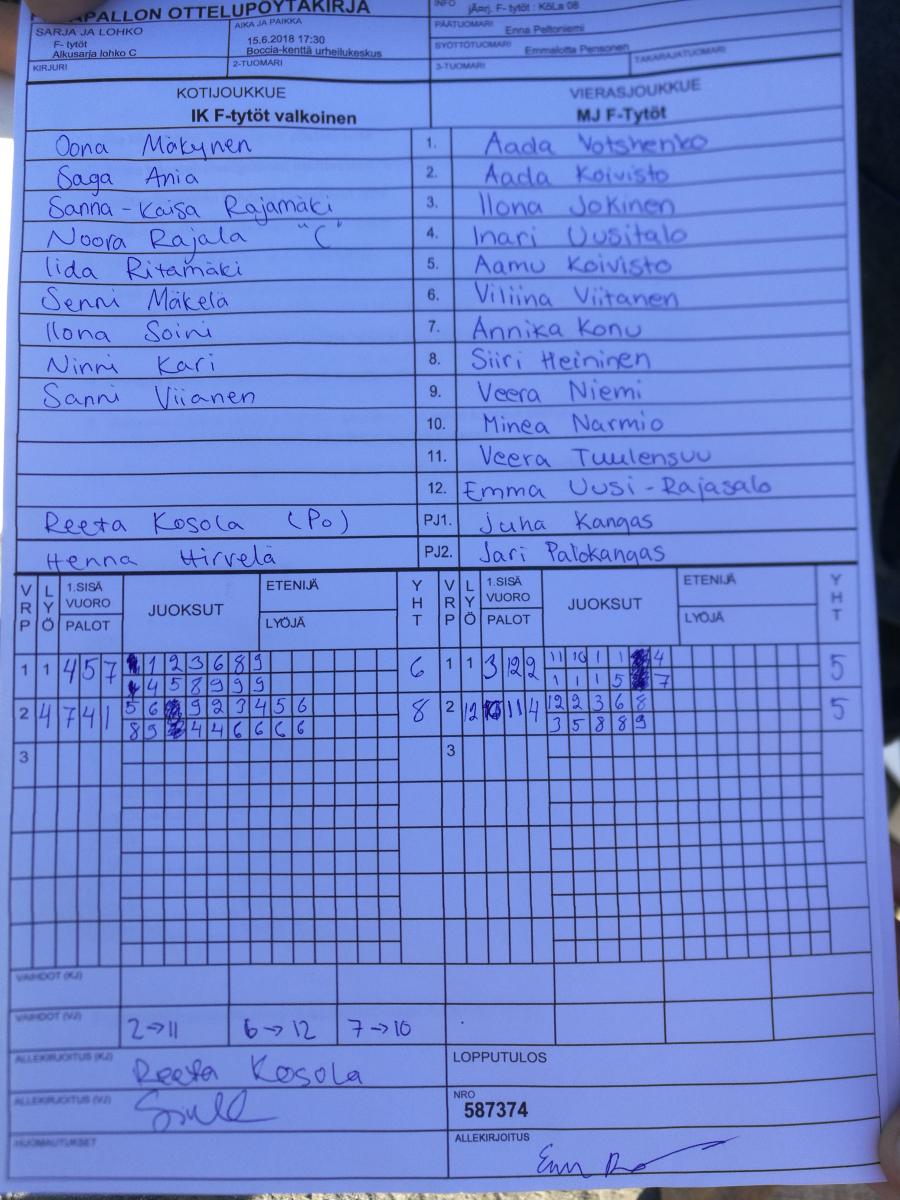 APALLON OTTELUPÖYTÄKIRJA
SARJA JA LOHKO
F- tytöt
Alkusarja lohko C
AIKA JA PAIKKA
15.6.2018 17:30
Boccia-kenttä urheilukeskus
INFO
F- tytöt : KöLs 08
PÄÄTUOMARI
Enna Peltoniemi
SYÖTTÖTUOMARI
Emmalotta Pensonen
KIRJURI
2-TUOMARI
3-TUOMARI
TAKARAJATUOMARI
KOTIJOUKKUE
VIERASJOUKKUE
IK F-tytöt valkoinen
MJ F-Tytöt
Oona Mäkynen 1. Aada Votshenko
Saga Ania 2. Aada Koivisto
Sanna-Kaisa Rajamäki 3. Ilona Jokinen
Noora Rajala "C" 4. Inari Uusitalo
Iida Ritamäki 5. Aamu Koivisto
Senni Mäkelä 6. Viliina Viitanen
Ilona Soini 7. Annika Konu
Ninni Kari 8. Siiri Heininen
Sanni Viianen 9. Veera Niemi
10. Minea Narmio
11. Veera Tuulensuu
12. Emma Uusi-Rajasalo
Reeta Kosola (Po) PJ1. Juha Kangas
Henna Hirvelä PJ2. Jari Palokangas
VRP LYÖ 1.SISÄ VUORO PALOT JUOKSUT ETENIJÄ LYÖJÄ YHT VRP LYÖ 1.SISÄ VUORO PALOT JUOKSUT ETENIJÄ LYÖJÄ YHT
1 1 4 5 7 1 2 3 6 8 9 6 1 1 3 12 2 11 10 1 1 4 5
4 5 8 9 9 9 1 1 1 5 7
2 4 7 4 1 5 6 9 2 3 4 5 6 8 2 12 11 4 12 2 3 6 8 5
8 9 4 4 6 6 6 6 3 5 8 8 9
3 3
VAIHDOT (KJ)
VAIHDOT (VJ) 2→11 6→12 7→10
ALLEKIRJOITUS (KJ) Reeta Kosola
LOPPUTULOS
ALLEKIRJOITUS (VJ)
NRO
587374
HUOMAUTUKSET
ALLEKIRJOITUS